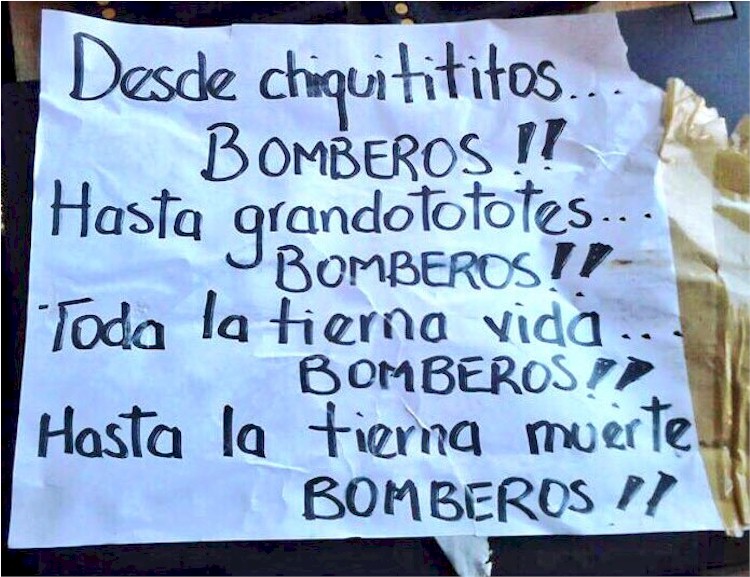 Desde chiquitititos...
BOMBEROS !!
Hasta grandotototes...
BOMBEROS!!
Toda la tierna vida...
BOMBEROS!!
Hasta la tierna muerte
BOMBEROS !!